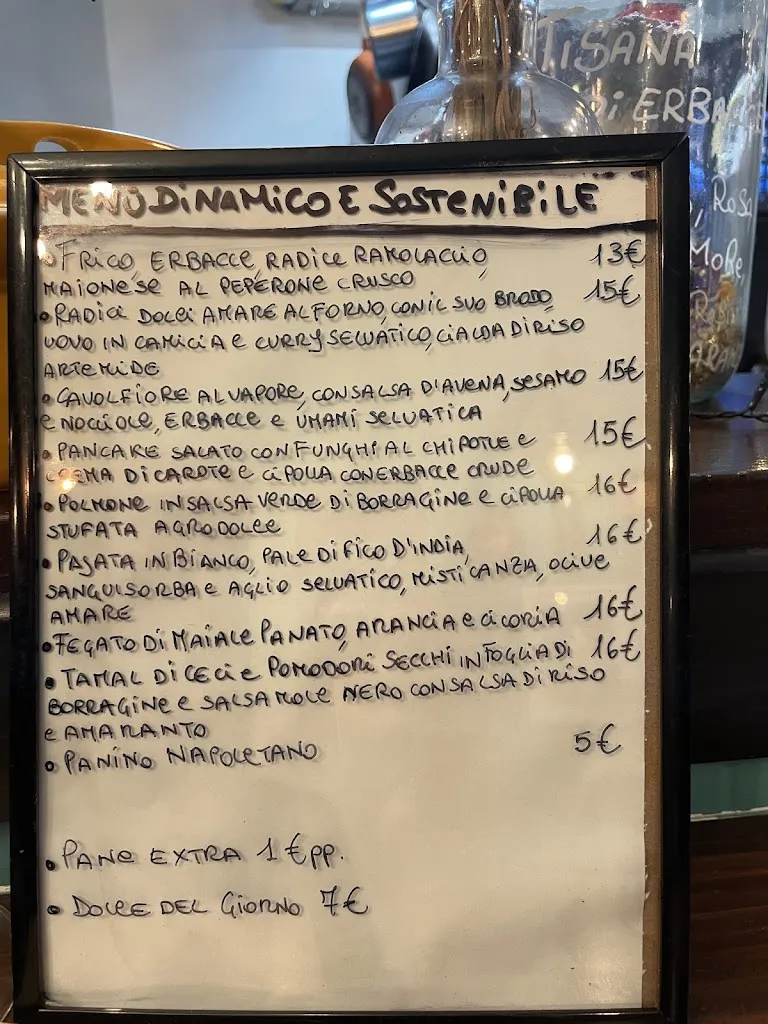 TISANA
Di ERBA
Rosa
MORE,
MENÙ DINAMICO E SOSTENIBILE
• FRICO, ERBACCE, RADICE RAMOLACCIO, 13€
MAIONESE AL PEPERONE CRUSCO
• RADICI DOLCI AMARE AL FORNO, CON IL SUO BRODO, 15€
UOVO IN CAMICIA E CURRY SELVATICO, CIALDA DI RISO
ARTEMIDE
• CAVOLFIORE AL VAPORE, CON SALSA D'AVENA, SESAMO 15€
E NOCCIOLE, ERBACCE E UMAMI SELVATICA
• PANCAKE SALATO CON FUNGHI AL CHIPOTLE E 15€
CREMA DI CAROTE E CIPOLLA CON ERBACCE CRUDE
• POLMONE IN SALSA VERDE DI BORRAGINE E CIPOLLA 16€
STUFATA AGRODOLCE
• PAJATA IN BIANCO, PALE DI FICO D'INDIA, 16€
SANGUISORBA E AGLIO SELVATICO, MISTICANZA, OLIVE
AMARE
• FEGATO DI MAIALE PANATO, ARANCIA E CICORIA 16€
• TAMAL DI CECI E POMODORI SECCHI IN FOGLIA DI 16€
BORRAGINE E SALSA MOLE NERO CON SALSA DI RISO
E AMARANTO
• PANINO NAPOLETANO 5€
• PANE EXTRA 1€ PP.
• DOLCE DEL GIORNO 7€